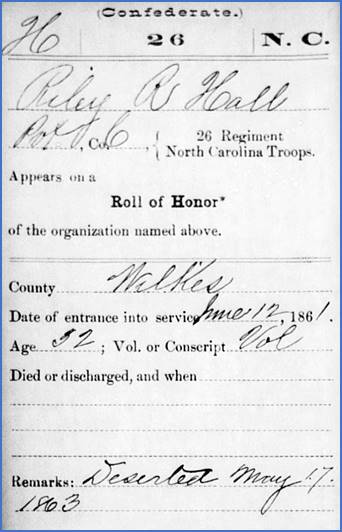 (Confederate.)
H | 26 | N. C.
Riley R Hall
Pvt, Co. C, { 26 Regiment
North Carolina Troops.
Appears on a
Roll of Honor*
of the organization named above.
County Wilkes
Date of entrance into service June 12, 1861.
Age 32; Vol. or Conscript Vol
Died or discharged, and when
Remarks: Deserted May 17.
1863